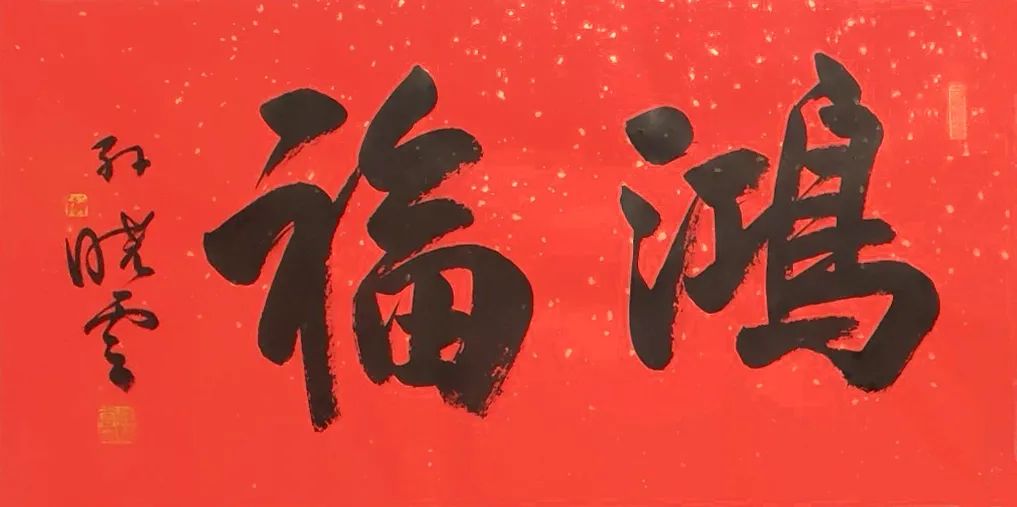 鸿福
孙晓云